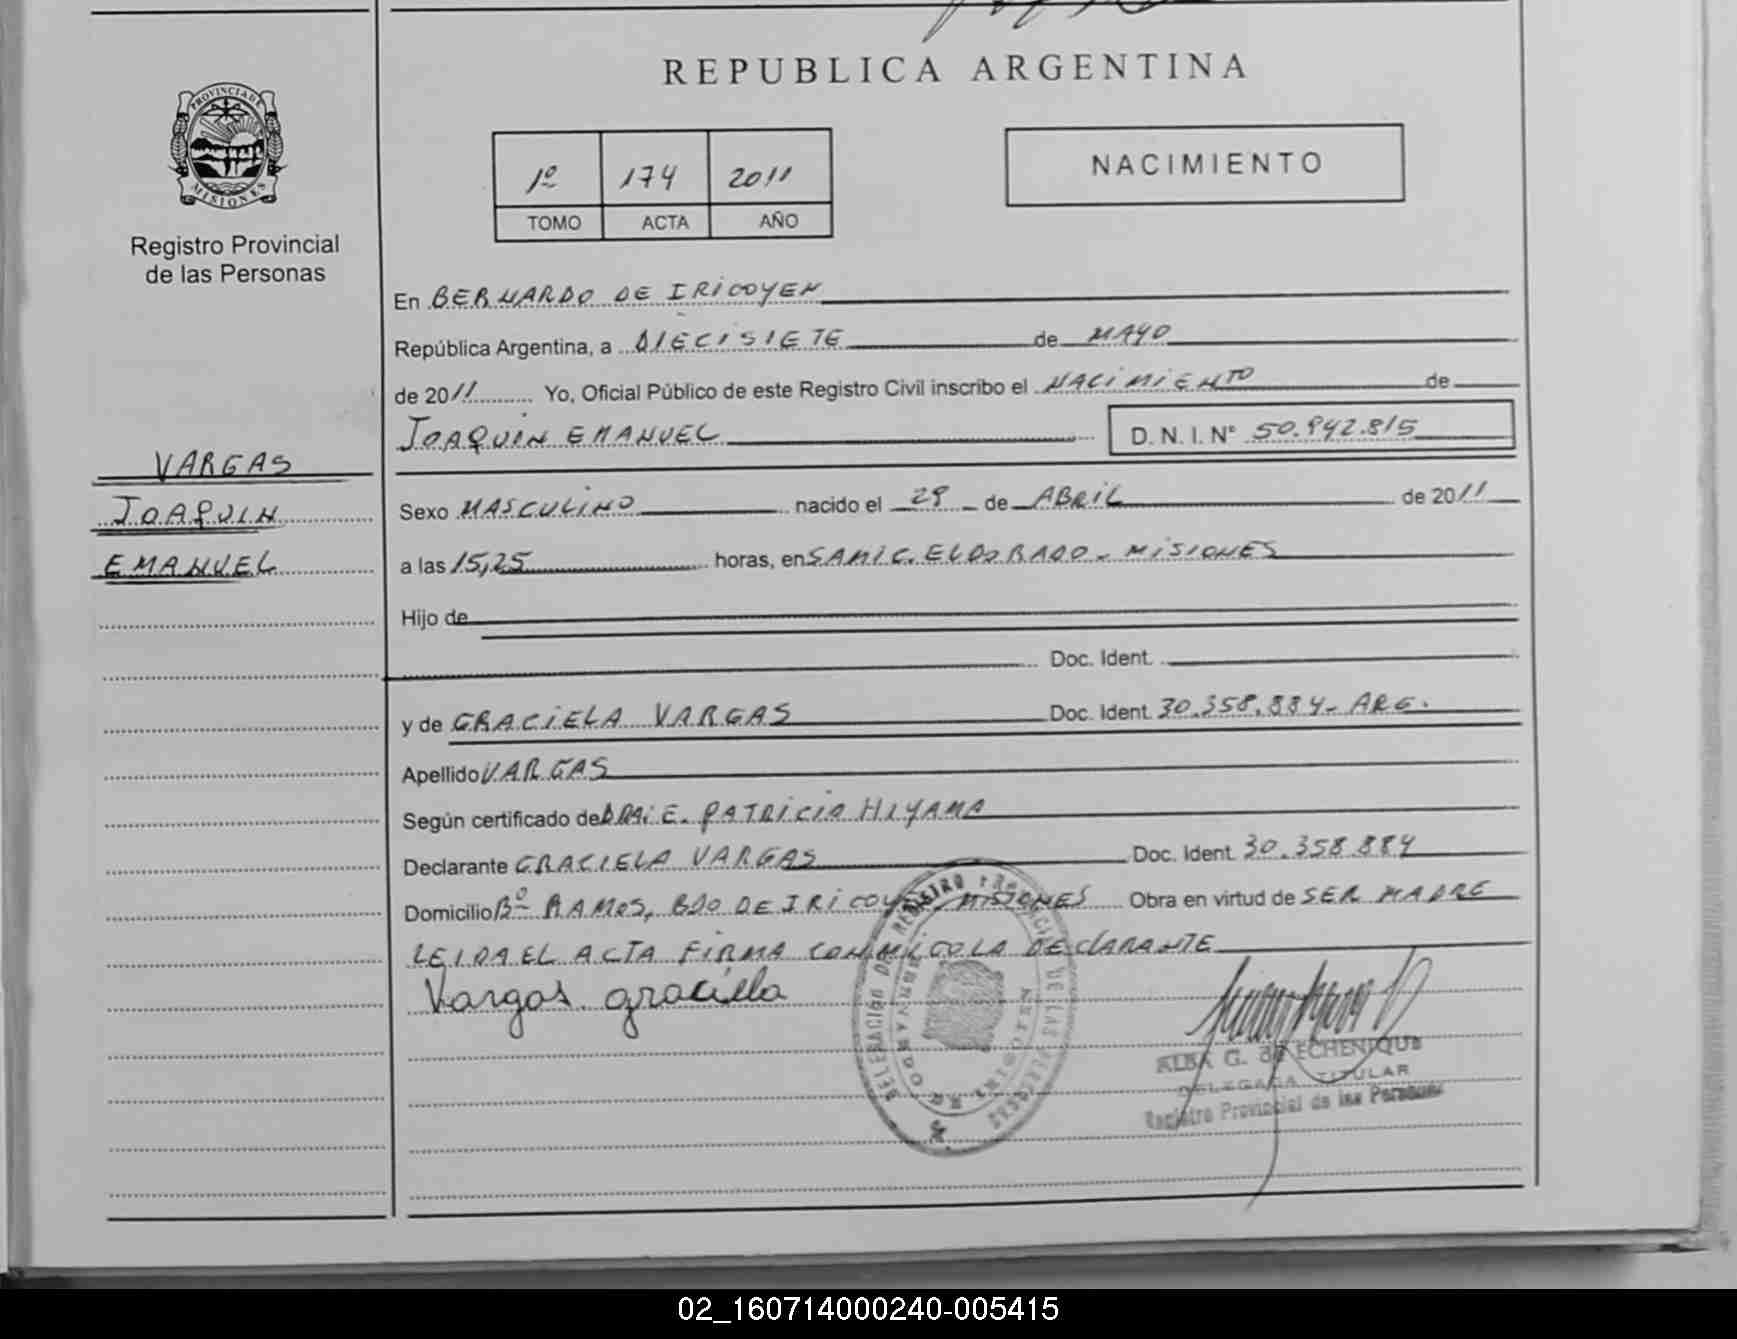 REPUBLICA ARGENTINA
PROVINCIA DE MISIONES
Registro Provincial
de las Personas
1º 174 2011
TOMO ACTA AÑO
NACIMIENTO
En BERNARDO DE IRIGOYEN
República Argentina, a DIECISIETE de MAYO
de 2011 Yo, Oficial Público de este Registro Civil inscribo el NACIMIENTO de
JOAQUIN EMANUEL D. N. I. Nº 50.942.815
VARGAS
JOAQUIN
EMANUEL
Sexo MASCULINO nacido el 29 de ABRIL de 2011
a las 15,25 horas, en SAMIC. ELDORADO - MISIONES
Hijo de
Doc. Ident.
y de GRACIELA VARGAS Doc. Ident. 30.358.884- ARG.
Apellido VARGAS
Según certificado de DRA. E. PATRICIA HIYAMA
Declarante GRACIELA VARGAS Doc. Ident. 30.358.884
Domicilio Bº RAMOS, BDO DE IRIGOYEN, MISIONES Obra en virtud de SER MADRE
LEIDA EL ACTA FIRMA CONMIGO LA DECLARANTE
Vargas graciela
ALBA G. de ECHENIQUE
DELEGADA TITULAR
Registro Provincial de las Personas
02_160714000240-005415